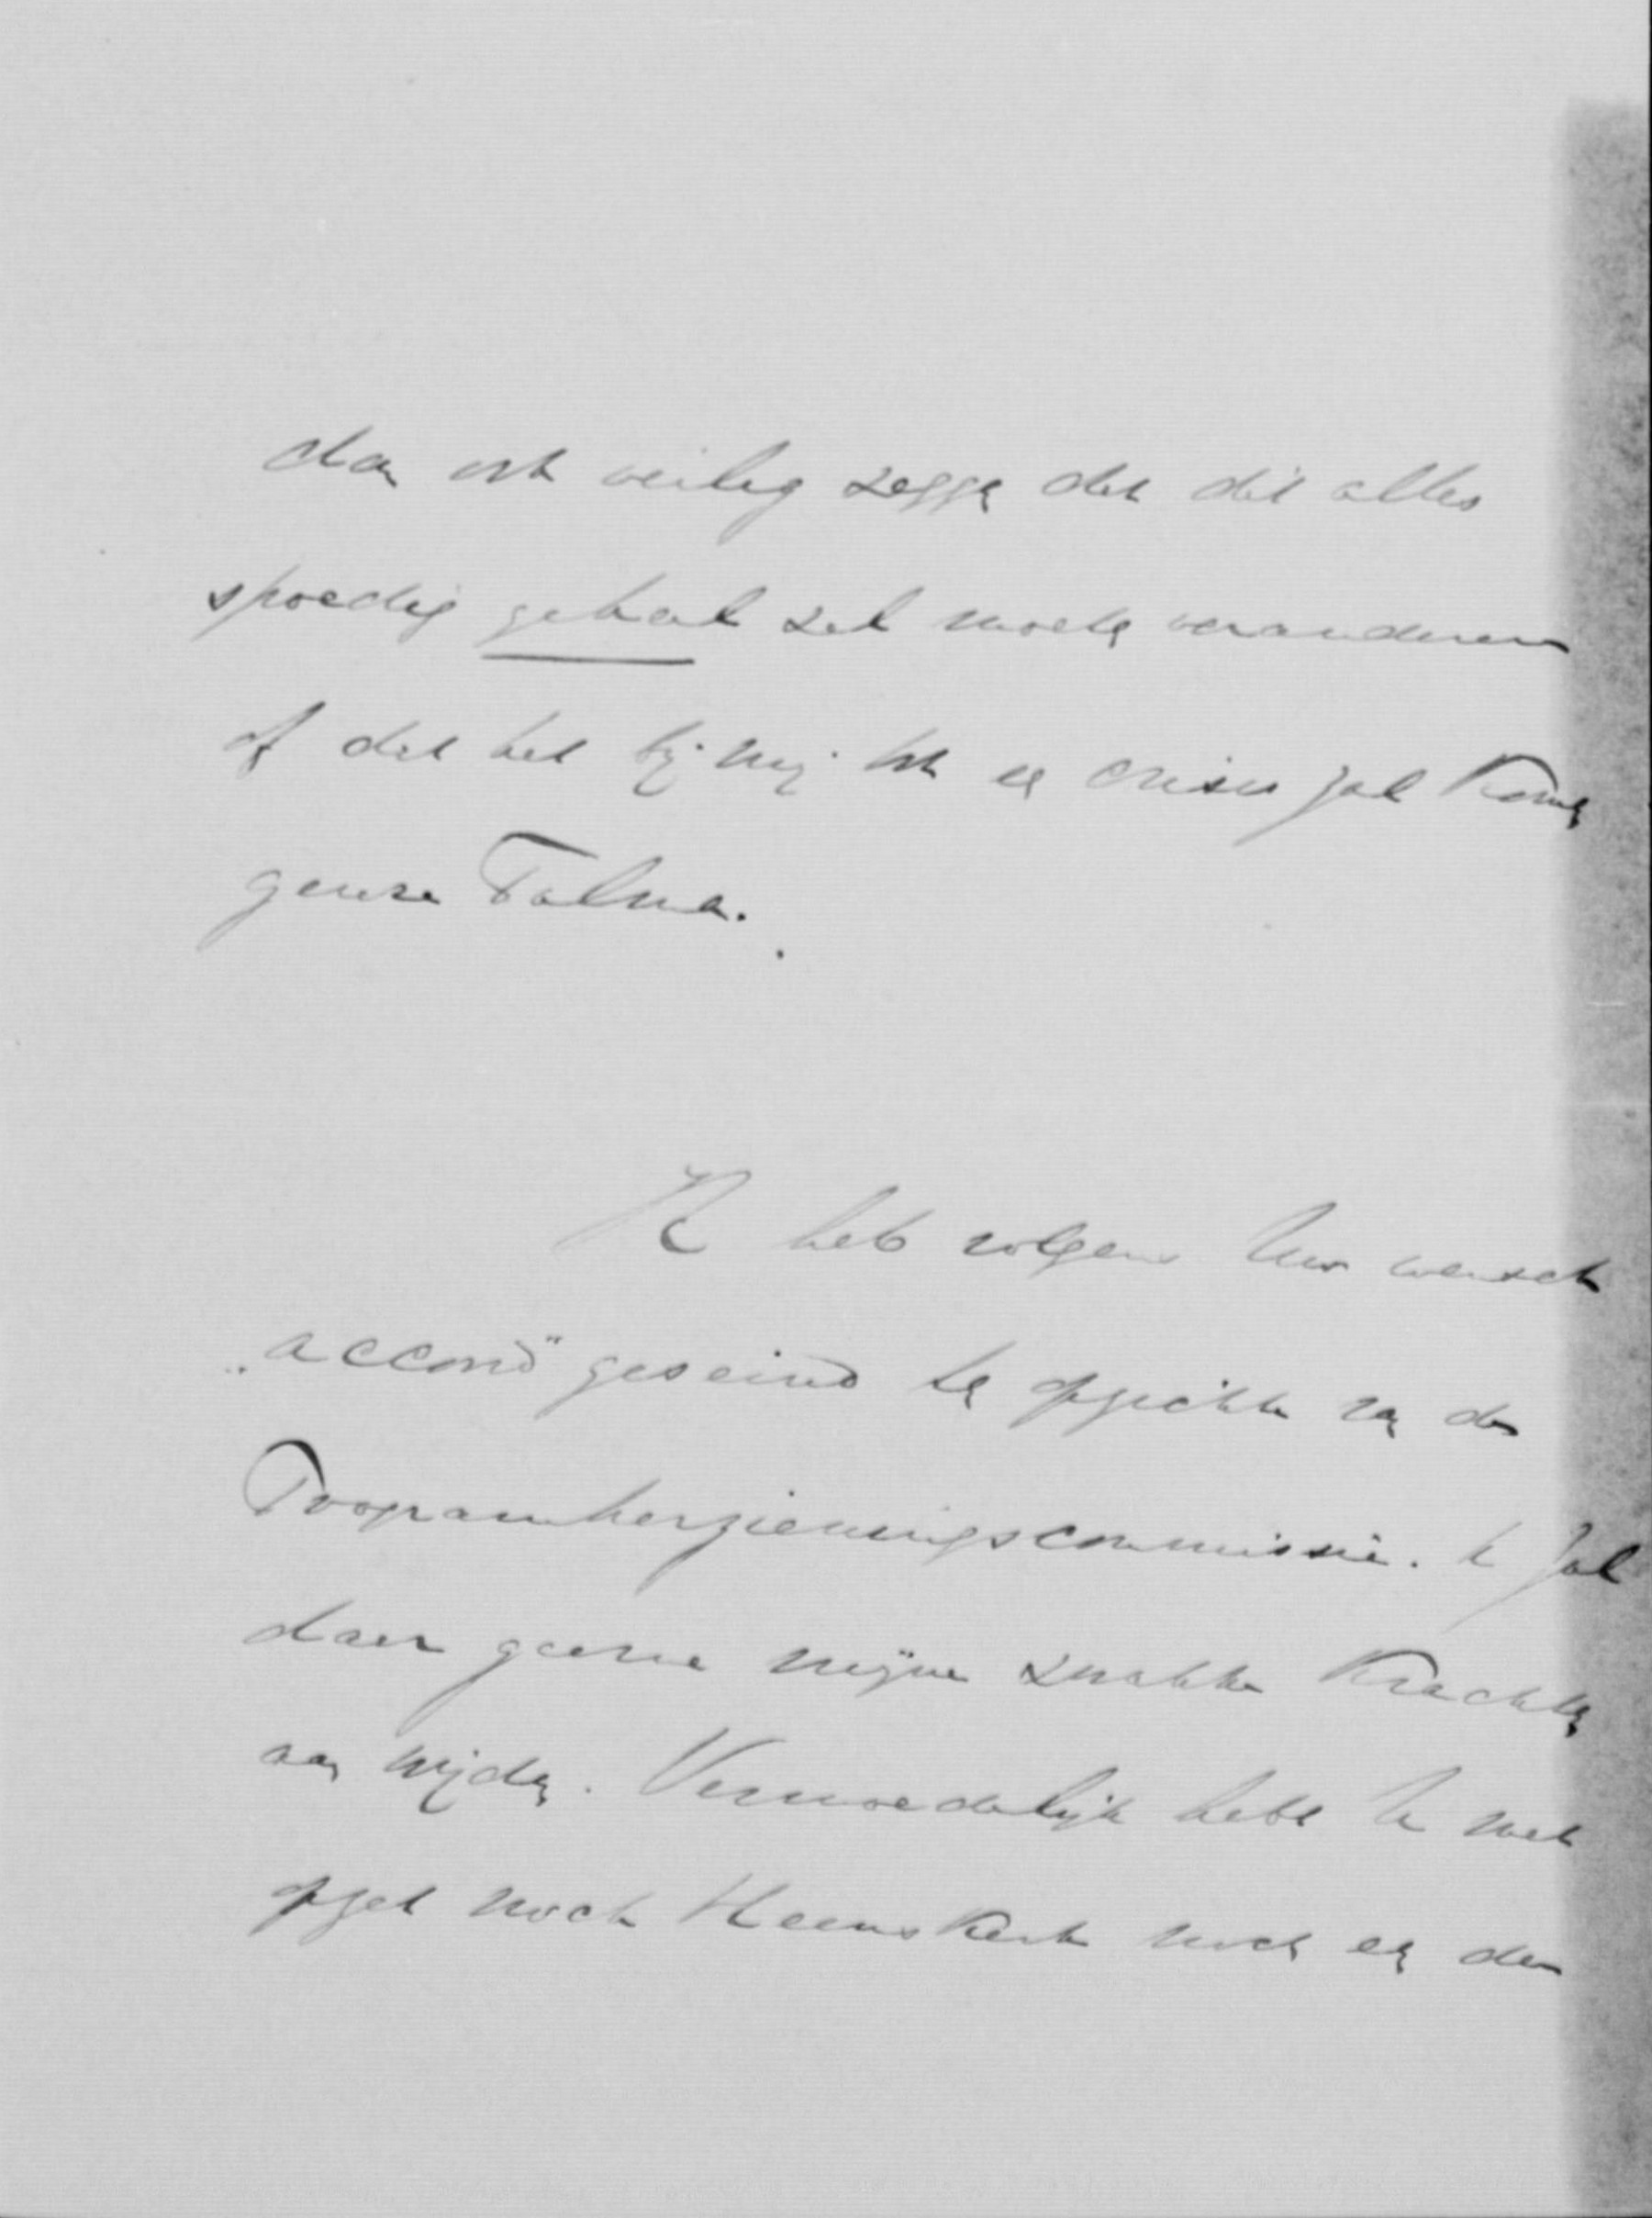 dan ook veilig zeggen dat dit alles
spoedig geheel zal moeten veranderen
of dat het bij mij tot een crisis zal komen
Talma.
Ik heb volgens Uw wensch
"accoord" geseind ten opzichte van de
Programherzieningscommissie. Ik zal
daar gaarne mijne zwakke krachten
aan wijden. Vermoedelijk hebt U met
opzet noch Heemskerk noch een der